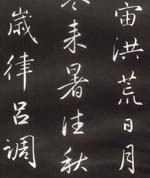 宙洪荒日月
冬来暑往秋
歲律吕調